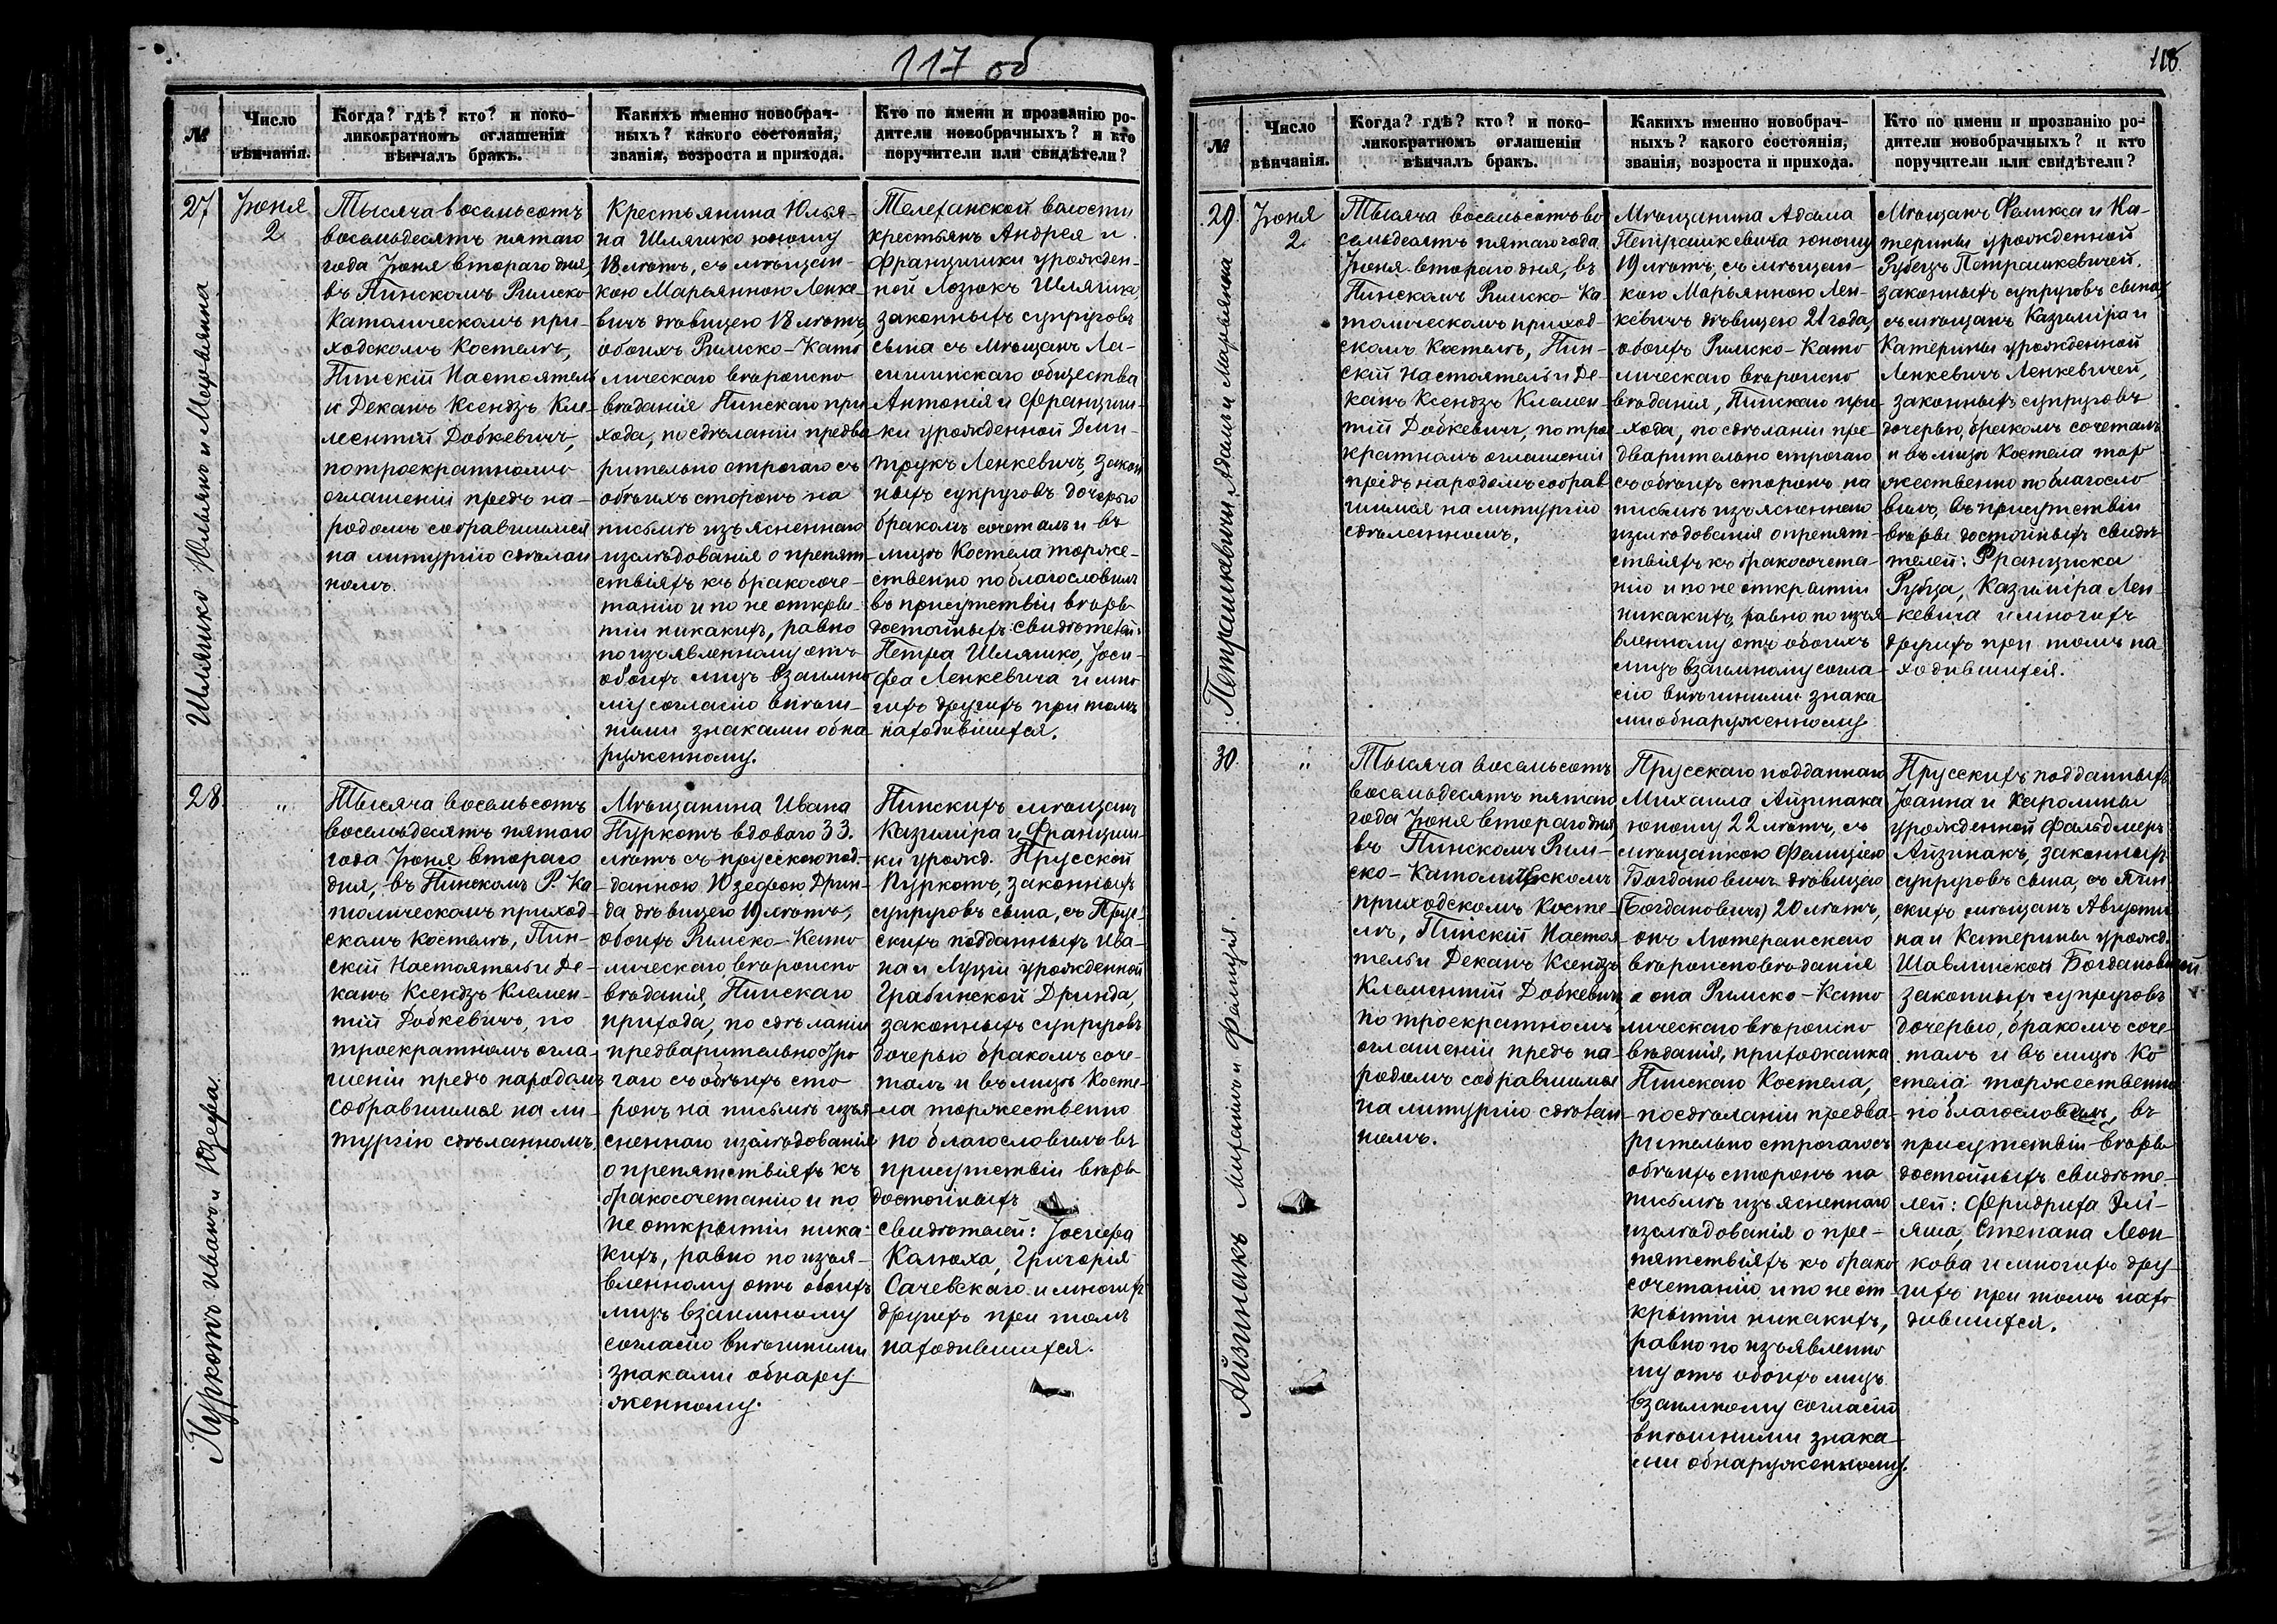 117 об
№
Число
вѣнчанія.
Когда? гдѣ? кто? и поко-
ликократномъ оглашеніи
вѣнчалъ бракъ.
Какихъ именно новобрач-
ныхъ? какого состоянія,
званія, возроста и прихода.
Кто по имени и прозванію ро-
дители новобрачныхъ? и кто
поручители или свидѣтели?
27
Шляшко Юльянъ и Марьянна
Іюня
2
Тысяча восемьсотъ
восемьдесятъ пятаго
года Іюня втораго дня,
въ Пинскомъ Римско
Католическомъ при-
ходскомъ Костелѣ,
Пинскій Настоятель
и Деканъ Ксендзъ Кле-
ментій Добкевичъ,
по троекратномъ
оглашеніи предъ на-
родомъ собравшимся
на литургію сдѣлан
номъ.
Крестьянина Юлья-
на Шляшко юношу
18 лѣтъ, съ мѣщан-
кою Марьянною Ленке-
вичъ дѣвицею 18 лѣтъ,
обоихъ Римско-Като
лическаго вѣроиспо
вѣданія Пинскаго при
хода, по сдѣланіи предва
рительно строгаго съ
обѣихъ сторонъ на
письмѣ изъясненнаго
изслѣдованія о препят
ствіяхъ къ бракосоче-
танію и по не откры-
тіи никакихъ, равно
по изъявленному отъ
обоихъ лицъ взаимно
му согласію внѣш-
ними знаками обна
руженному.
Телеханской волости
крестьянъ Андрея и
Францишки урожден-
ной Лозюкъ Шляшко,
законныхъ супруговъ
сына съ мѣщанъ Ла-
сицинскаго общества
Антонія и Францишкі-
ки урожденной Дми-
трукъ Ленкевичъ, закон
ныхъ супруговъ дочерью
бракомъ сочеталъ и въ
лицѣ Костела торже-
ственно поблагословилъ
въ присутствіи вѣры
достойныхъ свидѣтелей:
Петра Шляшко, Іоси-
фа Ленкевича и мно
гихъ другихъ при томъ
находившихся.
28.
Пуркотъ Иванъ и Юзефа.
"
Тысяча восемьсотъ
восемьдесятъ пятаго
года Іюня втораго
дня, въ Пинскомъ Р. Ка
толическомъ приход-
скомъ Костелѣ, Пин-
скій Настоятель и Де-
канъ Ксендзъ Клемен-
тій Добкевичъ, по
троекратномъ огла-
шеніи предъ народомъ
собравшимся на ли-
тургію сдѣланномъ.
Мѣщанина Ивана
Пуркотъ вдоваго 33.
лѣтъ съ прусскою под-
данною Юзефою Дрин-
да дѣвицею 19 лѣтъ,
обоихъ Римско-Като
лическаго вѣроиспо
вѣданія, Пинскаго
прихода, по сдѣланіи
предварительно стро
гаго съ обѣихъ сто
ронъ на письмѣ изъя
сненнаго изслѣдованія
о препятствіяхъ къ
бракосочетанію и по
не открытіи ника-
кихъ, равно по изъя-
вленному отъ обоихъ
лицъ взаимному
согласію внѣшними
знаками обнару
женному.
Пинскихъ мѣщанъ
Казиміра и Францишки-
ки урожд. Прусской
Пуркотъ, законныхъ
супруговъ сына, съ Прус-
скихъ подданныхъ Ива-
на и Луціи урожденной
Грабинской Дринда,
законныхъ супруговъ
дочерью бракомъ соче-
талъ и въ лицѣ Косте-
ла торжественно
поблагословилъ въ
присутствіи вѣры
достойныхъ
свидѣтелей: Іосифа
Калюха, Григорія
Сачевскаго и многихъ
другихъ при томъ
находившихся.
118
№
Число
вѣнчанія.
Когда? гдѣ? кто? и поко-
ликократномъ оглашеніи
вѣнчалъ бракъ.
Какихъ именно новобрач-
ныхъ? какого состоянія,
званія, возроста и прихода.
Кто по имени и прозванію ро-
дители новобрачныхъ? и кто
поручители или свидѣтели?
29.
Петрашкевичи Адамъ и Марьянна
Іюня
2.
Тысяча восемьсотъ во
семьдесятъ пятаго года
Іюня втораго дня, въ
Пинскомъ Римско-Ка-
толическомъ приход-
скомъ Костелѣ, Пин-
скій Настоятель и Де-
канъ Ксендзъ Клемен-
тій Добкевичъ, по трое
кратномъ оглашеніи
предъ народомъ собрав
шимся на литургію
сдѣланномъ.
Мѣщанина Адама
Петрашкевича юношу
19 лѣтъ, съ мѣщан-
кою Марьянною Лен-
кевичъ дѣвицею 21 года,
обоихъ Римско-Като
лическаго вѣроиспо
вѣданія, Пинскаго при
хода, по сдѣланіи пре-
дварительно строгаго
съ обѣихъ сторонъ на
письмѣ изъясненнаго
изслѣдованія о препят-
ствіяхъ къ бракосочета-
нію и по не открытіи
никакихъ, равно по изъя
вленному отъ обоихъ
лицъ взаимному согла-
сію внѣшними знака
ми обнаруженному.
Мѣщанъ Феликса и Ка-
терины урожденной
Рубецъ Петрашкевичей,
законныхъ супруговъ сына,
съ мѣщанъ Казиміра и
Катерины урожденной
Ленкевичъ Ленкевичей,
законныхъ супруговъ
дочерью, бракомъ сочеталъ
и въ лицѣ Костела тор
жественно поблагосло
вилъ, въ присутствіи
вѣры достойныхъ свидѣ
телей: Франциска
Рубца, Казиміра Лен-
кевича и многихъ
другихъ при томъ на
ходившихся.
30.
Айзинакъ Михаилъ и Фелиція.
"
Тысяча восемьсотъ
восемьдесятъ пятаго
года Іюня втораго дня
въ Пинскомъ Рим-
ско-Католическомъ
приходскомъ Косте-
лѣ, Пинскій Настоя
тель и Деканъ Ксендзъ
Клементій Добкевичъ
по троекратномъ
оглашеніи предъ на-
родомъ собравшимся
на литургію сдѣлан
номъ.
Прусскаго подданнаго
Михаила Айзинака
юношу 22 лѣтъ, съ
мѣщанкою Фелиціею
Богдановичъ дѣвицею
(Богдановичъ) 20 лѣтъ,
онъ Лютеранскаго
вѣроисповѣданія
а она Римско-Като
лическаго вѣроиспо
вѣданія, прихожанка
Пинскаго Костела,
по сдѣланіи предва-
рительно строгаго съ
обѣихъ сторонъ на
письмѣ изъясненнаго
изслѣдованія о пре-
пятствіяхъ къ брако
сочетанію и по не от-
крытіи никакихъ,
равно по изъявленно
му отъ обоихъ лицъ
взаимному согласію
внѣшними знака-
ми обнаруженному.
Прусскихъ подданныхъ
Іоанна и Каролины
урожденной Фальдмеръ
Айзинакъ, законныхъ
супруговъ сына, съ Пин
скихъ мѣщанъ Августи
на и Катерины урожд.
Шавлинской Богдановичей
законныхъ супруговъ
дочерью, бракомъ соче
талъ и въ лицѣ Ко
стела торжественно
поблагословилъ, въ
присутствіи вѣры
достойныхъ свидѣте-
лей: Фридриха Эли-
яша, Степана Леон-
кова и многихъ дру-
гихъ при томъ нахо
дившихся.